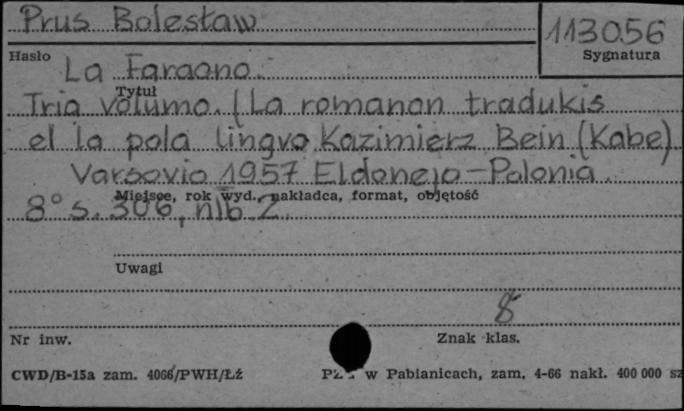 Prus Bolesław
113056
Hasło
Sygnatura
La Faraono.
Tytuł
Tria volumo. (La romanon tradukis
el la pola lingvo Kazimierz Bein (Kabe)
Varsovio 1957 Eldonejo-Polonia.
Miejsce, rok wyd., nakładca, format, objętość
8° s. 306, nlb 2.
Uwagi
8
Nr inw.
Znak klas.
CWD/B-15a zam. 4066/PWH/Łź
w Pabianicach, zam. 4-66 nakł. 400 000 sz